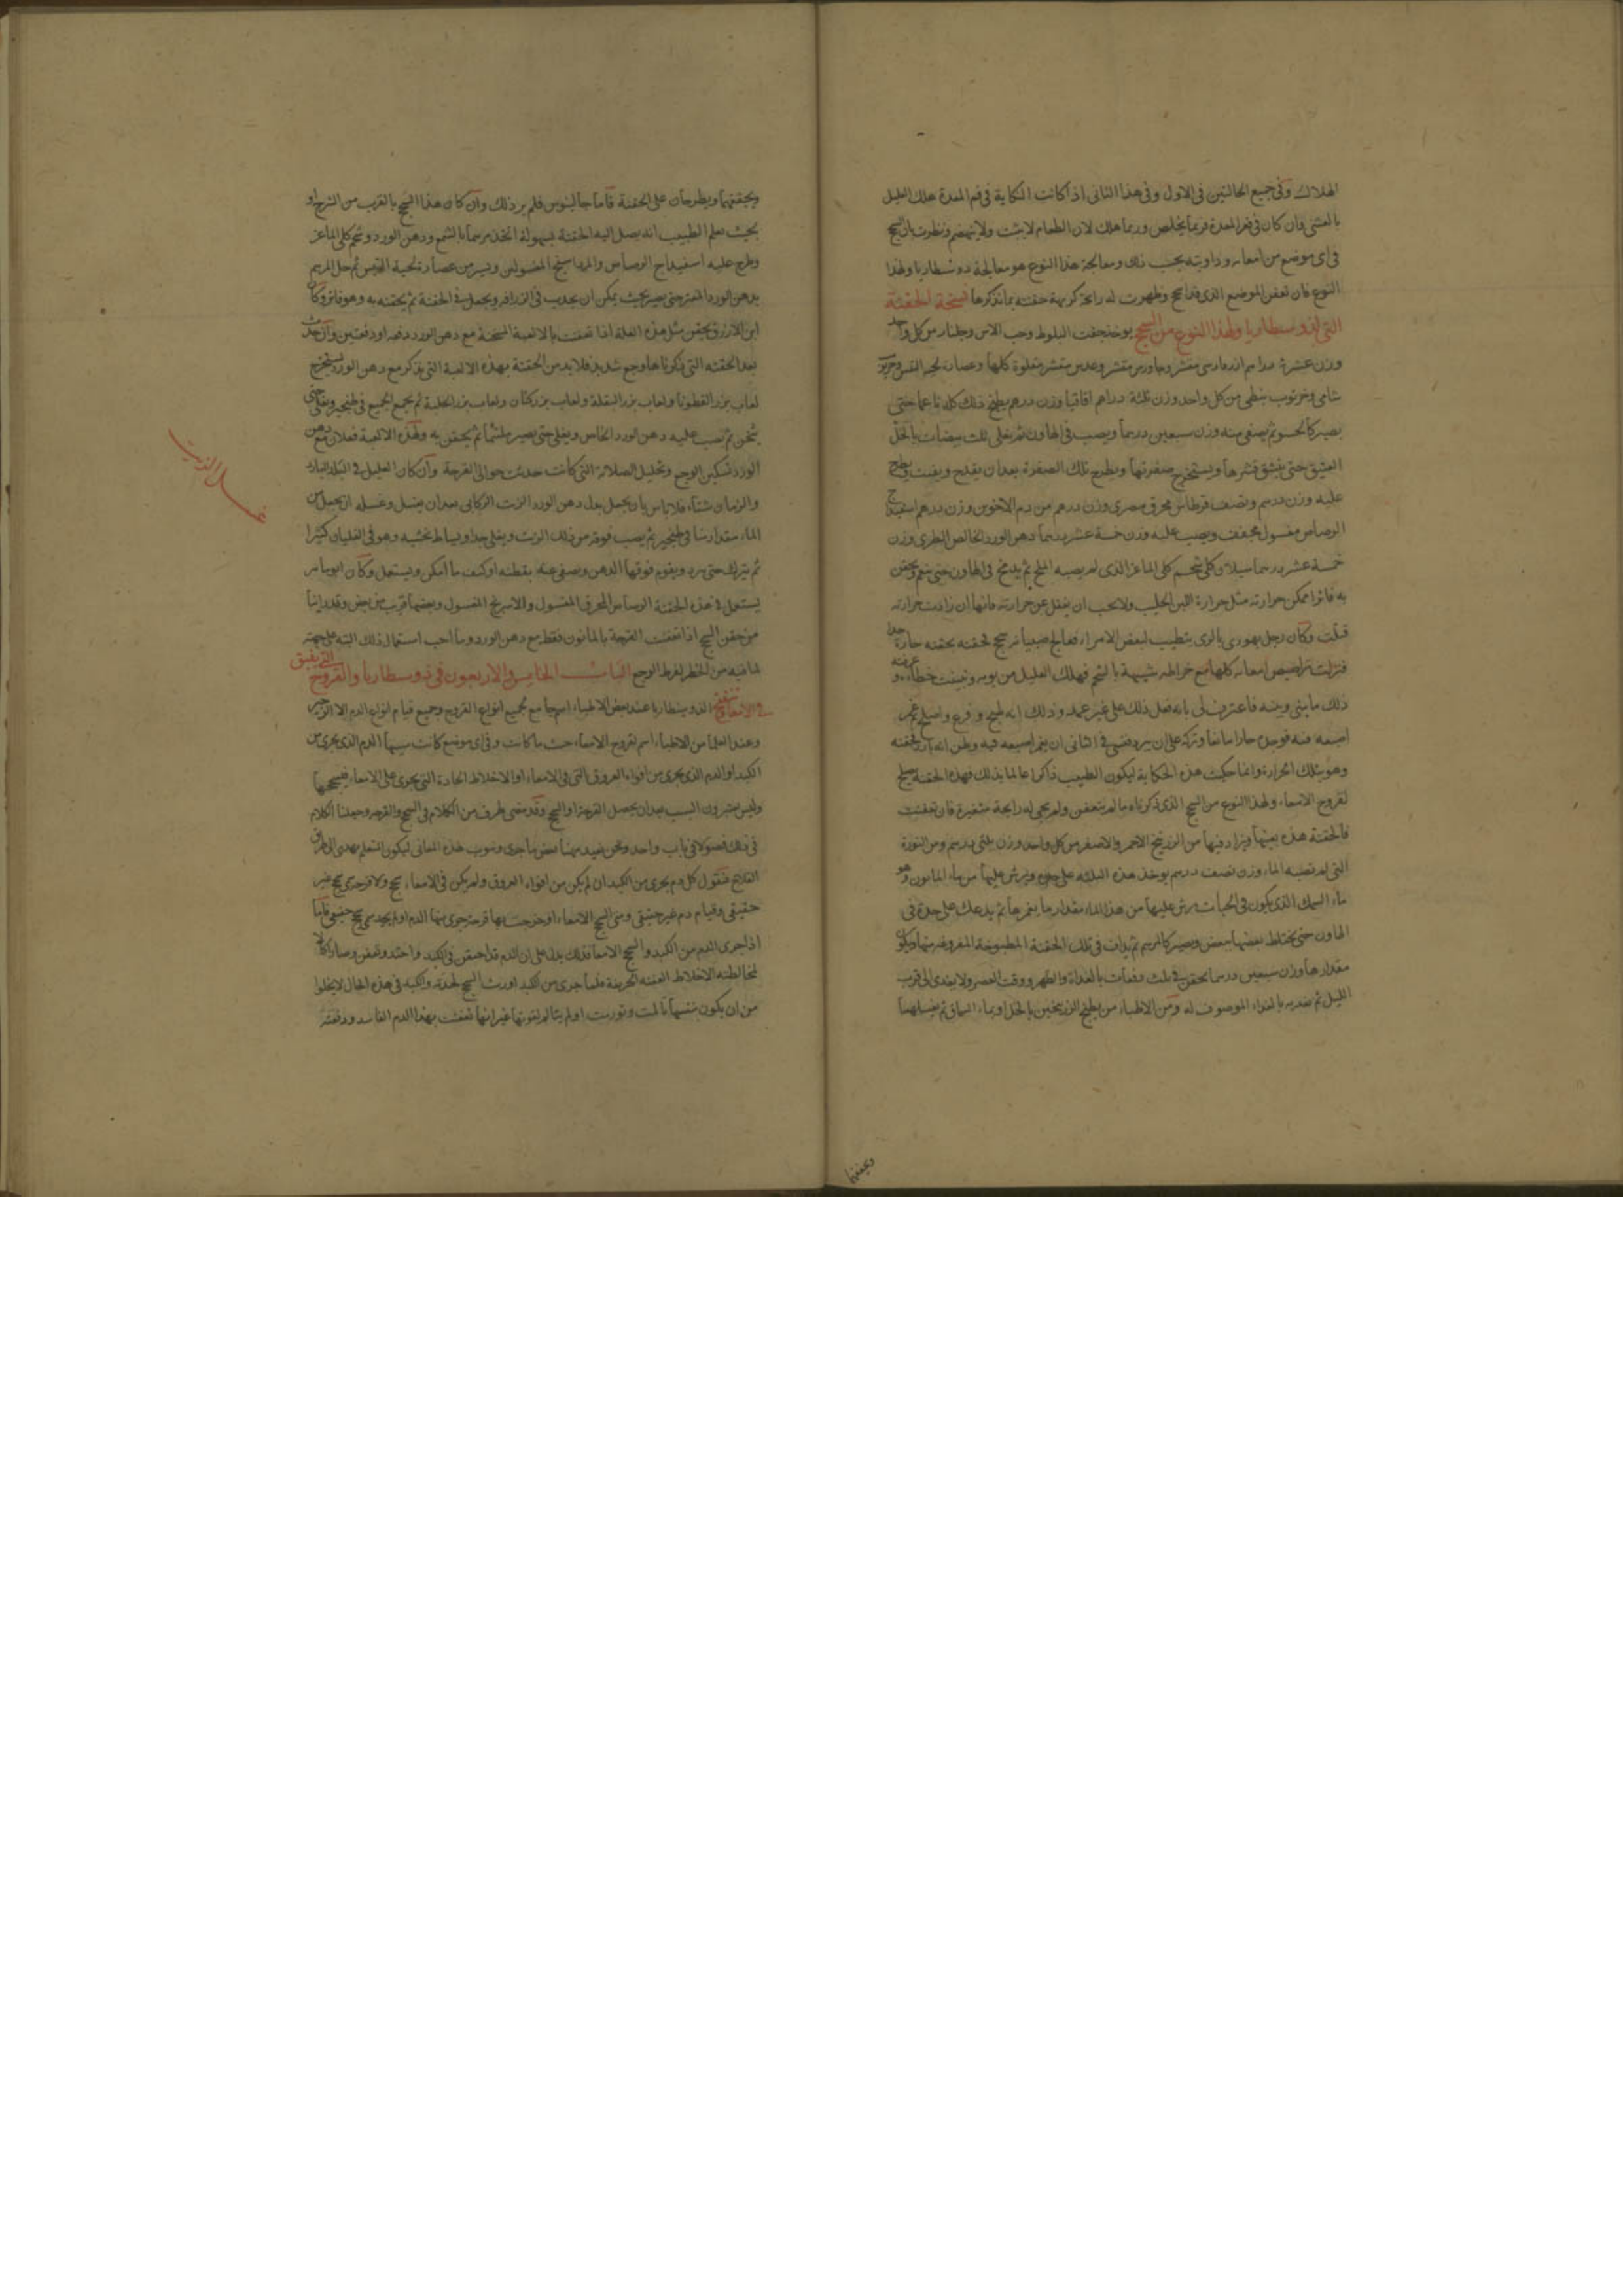 الهلاك وفى جميع الحالتين فى الاول وفى هذا الثانى اذا كانت النكاية فى فم المعدة هلك العليل
بالغشى وان كان فى قعر المعدة فربما يخلص وربما هلك لان الطعام لا يثبت ولا ينهضم ونظرت بان السحج
فى اى موضع من امعائه وداويته بحسب ذلك ومعالجة هذا النوع هو معالجة دوسنطاريا ولهذا
النوع فان تعفن الموضع الذى قد انسحج وظهرت له رائحة كريهة حقنته بما نذكرها نسخة الحقنة
التى لذوسنطاريا ولهذا النوع من السحج يوخذ جفت البلوط وحب الآس وجلنار من كل واحد
وزن عشرة دراهم ارز فارسى مقشر وجاورس مقشر وعدس مقشر مقلوة كلها وعصارة لحية التيس وخرنوب
شامى وخرنوب نبطى من كل واحد وزن ثلثة دراهم اقاقيا وزن درهم يطبخ ذلك كله ناعما حتى
يصير كالحسو ثم يصفى منه وزن سبعين درهما ويصب فى الهاون ثم يغلى ثلث بيضات بالخل
العتيق حتى ينشق قشرها ويستخرج صفرتها ويطرح تلك الصفرة بعد ان يقدح ويفتت ويطرح
عليه وزن درهم ونصف قرطاس محرق مصرى وزن درهم من دم الاخوين وزن درهم اسفيداج
الرصاص مغسول مجفف ويصب عليه وزن خمسة عشر درهما دهن الورد الخالص الطرى وزن
خمسة عشر درهما سيلان كلى شحم كلى الماعز الذى لم يصبه الملح ثم يدعك فى الهاون حتى ينعم ويحقن
به فاترا ممكن حرارته مثل حرارة اللبن الحليب ولا يجب ان يغفل عن حرارته فانها ان زادت حرارته
قتلت وكان رجل يهودى بالرى يتطبب لبعض الامراء فعالج صبيا من سحج لحقنه بحقنة حارة جدا
فنزلت تراصيص امعائه كلها مع خراطه شبيهة بالشحم فهلك العليل من يومه وتبينت خطاءه وعرفته
ذلك ما بينى وبينه فاعترف لى بانه فعل ذلك على غير عمد وذلك انه طبخ وفرغ واصلح ثم غمر
اصبعه فيه فوجده حارا مانعا وتركه على ان يبرد فنسى فى الثانى ان يغمر اصبعه فيه وظن انه بارد فحقنه
وهو بتلك الحرارة وانما حكيت هذه الحكاية ليكون الطبيب ذاكرا عالما بذلك فهذه الحقنة يصلح
لقروح الامعاء ولهذا النوع من السحج الذى ذكرناه ما لم يتعفن ولم يجئ له رائحة متغيرة فان تعفنت
فالحقنة هذه بعينها ويزاد فيها من الزرنيخ الاحمر والاصفر من كل واحد وزن ثلثى درهم ومن النورة
التى لم تصبه الماء وزن نصف درهم يوخذ هذه الثلثة على حدة ويرش عليها من ماء المانون وهو
ماء السمك الذى يكون فى الحباب يرش عليها من هذا الماء مقدار ما يغمرها ثم يدعك على حدة فى
الهاون حتى يختلط بعضها ببعض ويصير كالمرهم ثم يداف فى تلك الحقنة المطبوخة المفروغ منها ويكون
مقدارها وزن سبعين درهما تحقن فى ثلث دفعات بالغداة والظهر ووقت العصر ولا يغذى الى قرب
الليل ثم يغذيه بالغذاء الموصوف له ومن الاطباء من يطبخ الزرنيخين بالخل او بماء السماق ثم يغسلهما
ويجففهما
ويجففهما ويطرحان على الحقنة فاما جالينوس فلم ير ذلك وان كان هذا السحج بالقرب من الشرج او
بحيث يعلم الطبيب انه يصل اليه الحقنة بسهولة اتخذ مرهما بالشمع ودهن الورد وشحم كلى الماعز
وطرح عليه اسفيداج الرصاص والمرداسنج المغسولين ويسير من عصارة لحية التيس ثم حل المرهم
بدهن الورد المفتر حتى يصير بحيث يمكن ان يجذب فى الزراقة ويجعل فى الحقنة ثم يحقنه به وهو فاتر وكان
ابن الازرق يحقن مثل هذه العلة اذا تعفنت بالالعبة المسخنة مع دهن الورد دفعه او دفعتين وان حدث
بعد الحقنه التى ذكرناها وجع شديد فلا بد من الحقنة بهذه الالعبة التى نذكر مع دهن الورد يستخرج
لعاب بزر القطونا ولعاب بزر البقلة ولعاب بزر كتان ولعاب بزر الحلبة ثم يجمع الجميع فى طنجير ويغلى حتى
يثخن ثم يصب عليه دهن الورد الخالص ويغلى حتى يصير ملتئما ثم يحقن به ولهذه الالعبة فعلان مع دهن
الورد تسكين الوجع وتحليل الصلابة التى كانت حدثت حوالى القرحة وان كان العليل فى البلد البارد
والزمان شتاء فلا باس بان يجعل بدل دهن الورد الزيت الركابى بعد ان يغسل وغسله ان يجعل من
الماء مقدارما فى طنجير ثم يصب فوقه من ذلك الزيت ويغلى جدا ويساط بخشبه وهو فى الغليان كثيرا
ثم يترك حتى يبرد ويقوم فوقها الدهن ويصفى عنه بقطنه او كيف ما امكن ويستعمل وكان ابو ماهر
يستعمل فى هذه الحقنة الرصاص المحرق المغسول والاسرنج المغسول وبعضها قريب من بعض وقد راينا
من حقن السحج اذا تعفنت القرحة بالمانون فقط مع دهن الورد وما احب استعمال ذلك البته على جهته
لما فيه من الخطر لفرط الوجع الباب الخامس والاربعون فى ذوسنطاريا والقروح التى يفيق
فى الامعاء الذوسنطاريا عند بعض الاطباء اسم جامع لجميع انواع القروح وجميع قيام انواع الدم الا الزحير
وعند العلما من الاطباء اسم لقروح الامعاء حيث ما كانت وفى اى موضع كانت سببها الدم الذى يجرى من
الكبد او الدم الذى يجرى من افواه العروق التى فى الامعاء او الاخلاط الحادة التى يجرى على الامعاء فيسحجها
وليس يعتبرون السبب بعد ان يحصل القرحة او السحج وقد مضى طرف من الكلام فى السحج والقرحه وجعلنا الكلام
فى ذلك فصولا فى باب واحد ونحن نعيد ههنا بعض ما جرى ونبوب هذه المعانى ليكون المتعلم يهدى الى طرق
العلاج فنقول كل دم يجرى من الكبد ان لم يكن من افواه العروق ولم يكن فى الامعاء سحج ولا قرحة سمى سحج غير
حقيقى وقيام دم غير حقيقى ومتى انسحج الامعاء او خرجت بها قرحة جرى منها الدم او لم يجر سمى سحج حقيقى فانما
اذا جرى الدم من الكبد والسحج الامعا فذلك يدل على ان الدم قد احتقن فى الكبد واحتد وتعفن وصار اكالا
لمخالطته الاخلاط العفنه الحريفة فلما جرى من الكبد اورث السحج لحدته والكبد فى هذه الحال لا يخلوا
من ان يكون بنفسها تالمت وتورمت او لم يتالم لقوتها غير انها تعفنت بهذا الدم الفاسد ودفعته
غسل الزيت